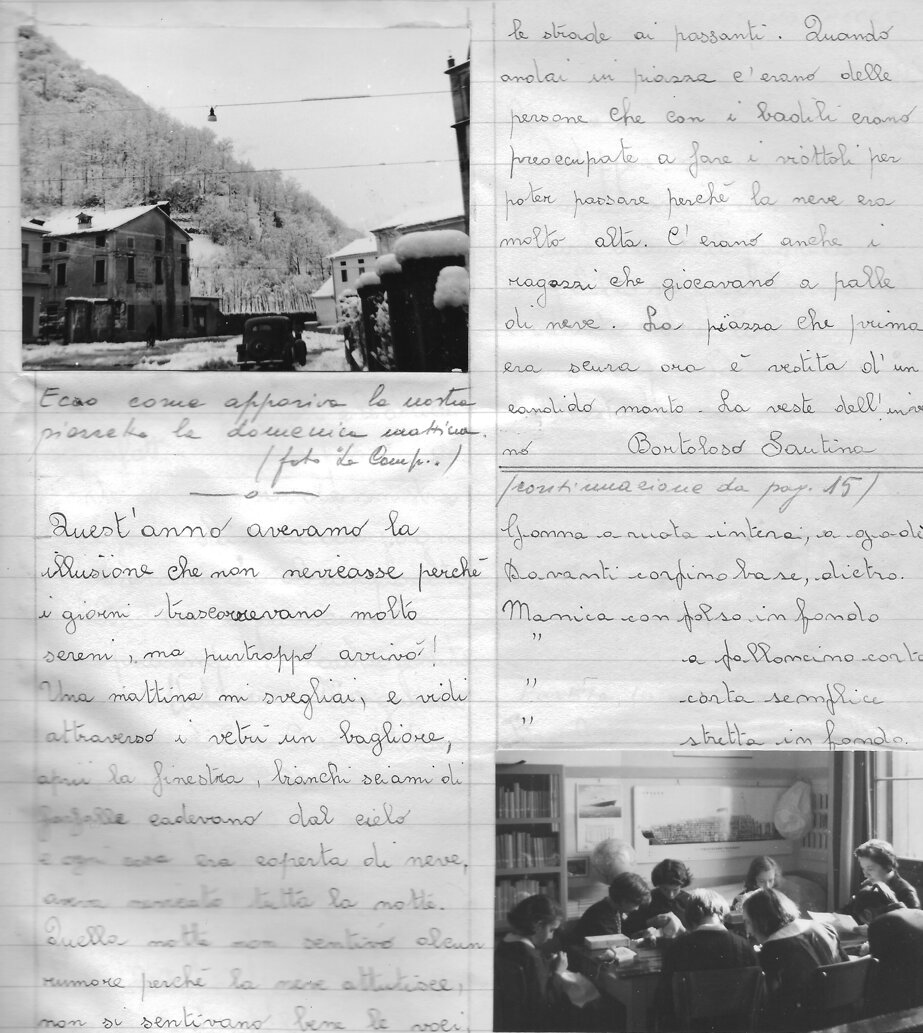 Ecco come appariva la nostra
piazzetta la domenica mattina.
(foto "Le Comp..)
Quest'anno avevamo la
illusione che non nevicasse perchè
i giorni trascorrevano molto
sereni, ma purtroppo arrivò!
Una mattina mi svegliai, e vidi
attraverso i vetri un bagliore,
aprii la finestra, bianchi sciami di
farfalle cadevano dal cielo
e ogni cosa era coperta di neve,
aveva nevicato tutta la notte.
Quella notte non sentivo alcun
rumore perchè la neve attutisce,
non si sentivano bene le voci
le strade ai passanti. Quando
andai in piazza c'erano delle
persone che con i badili erano
preoccupate a fare i viottoli per
poter passare perchè la neve era
molto alta. C'erano anche i
ragazzi che giocavano a palle
di neve. La piazza che prima
era scura ora è vestita d'un
candido manto. La veste dell'inver
no Bortoloso Santina
(continuazione da pag. 15)
Gonna a ruota intera, a godè
Davanti corpino base, dietro.
Manica con polso in fondo
" a palloncino corta
" corta semplice
" stretta in fondo.